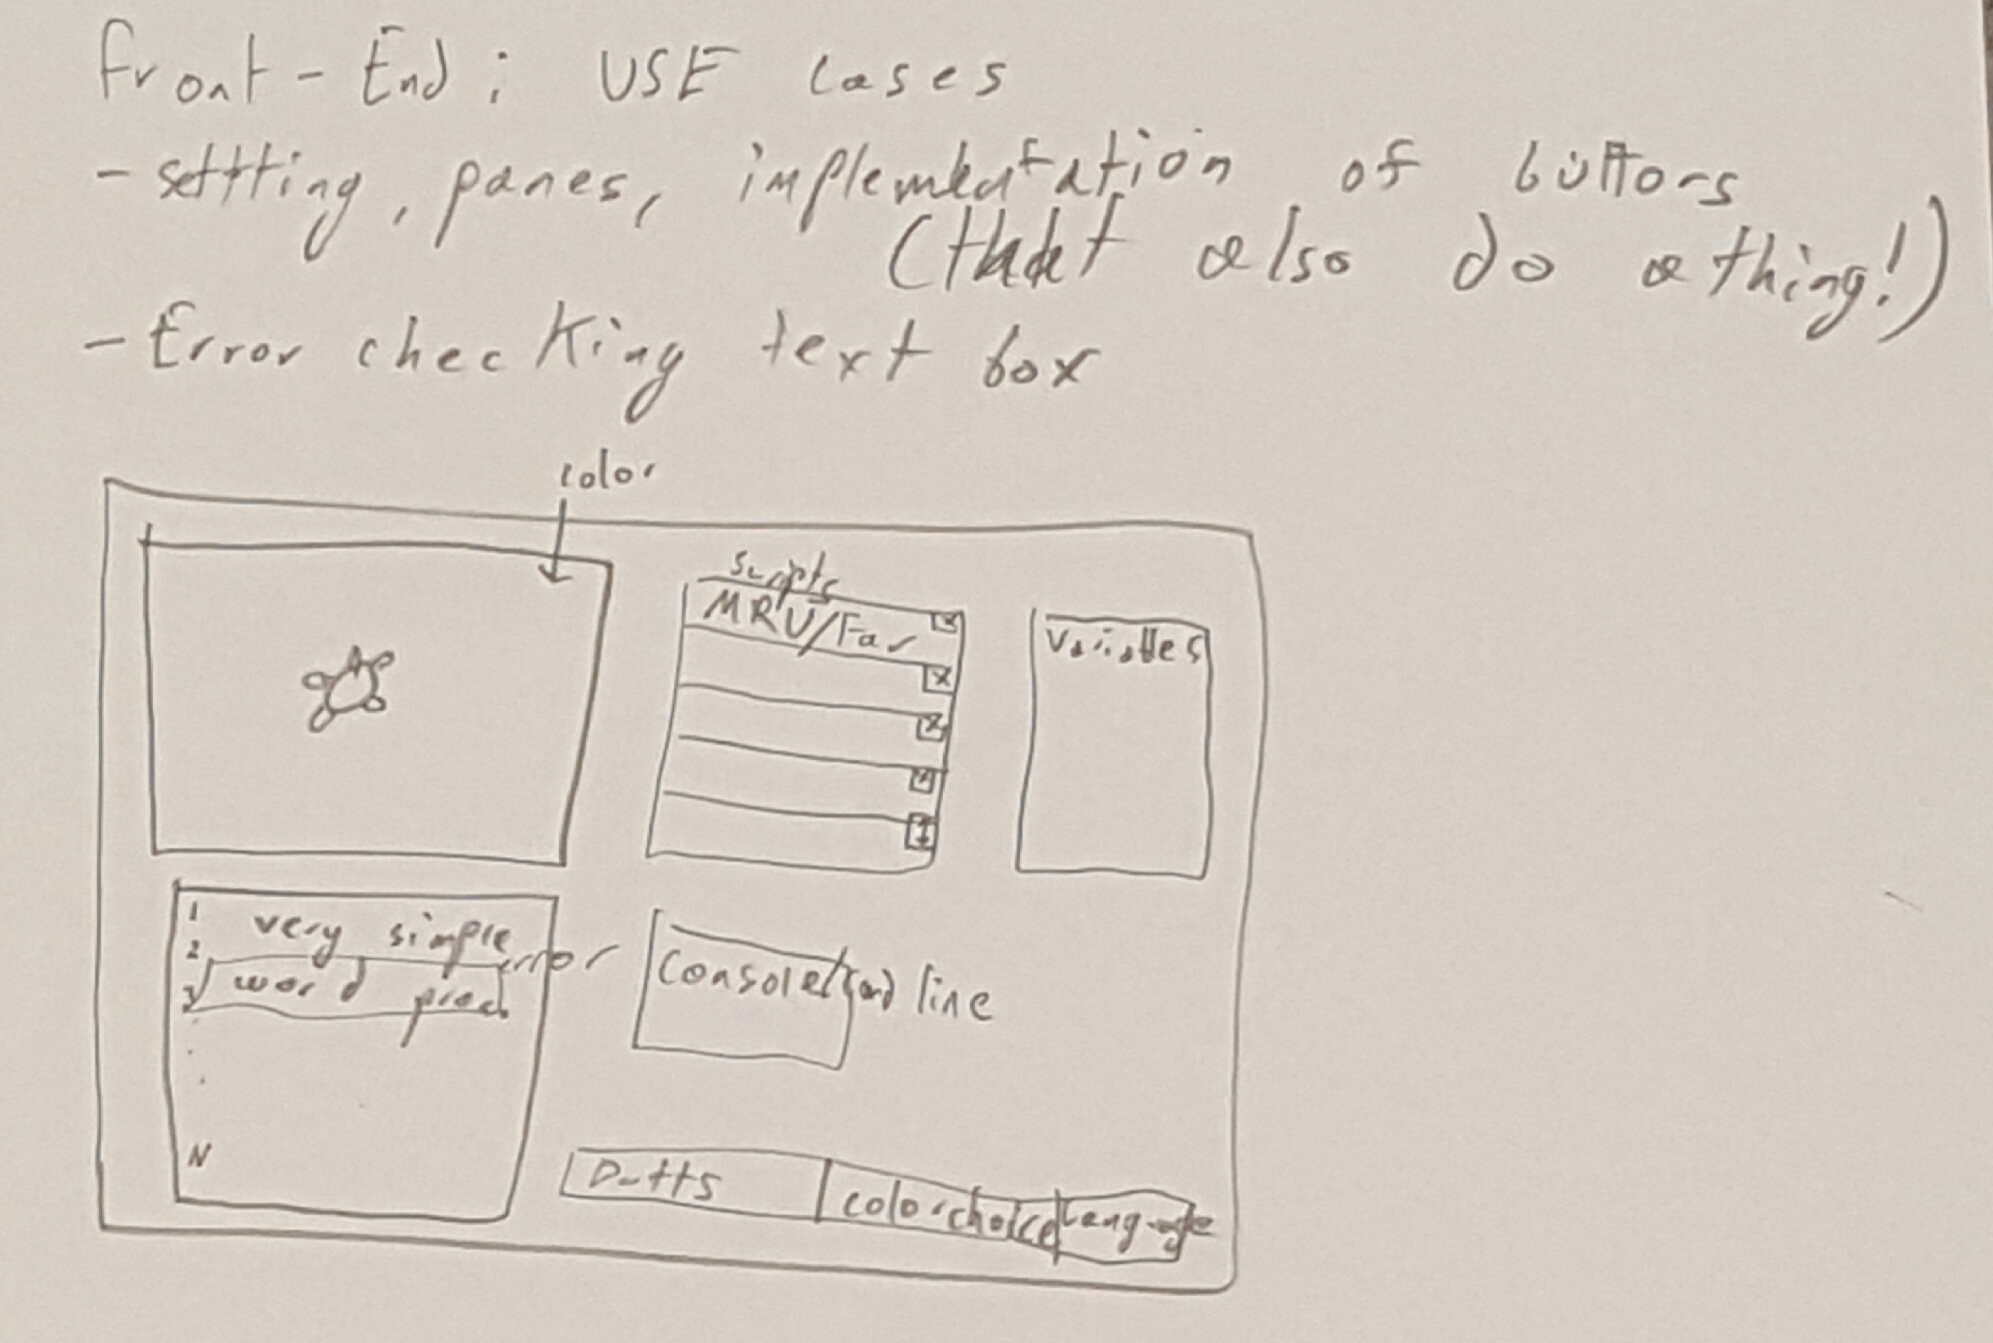 Front-End: USE cases
- settting, panes, implementation of buttons
(that also do a thing!)
- Error checking text box
color
scripts
MRU/Fav
x
x
x
x
Variables
1 very simple
2 error
3 word proc.
.
.
.
N
Console/cmd line
color choice
Language